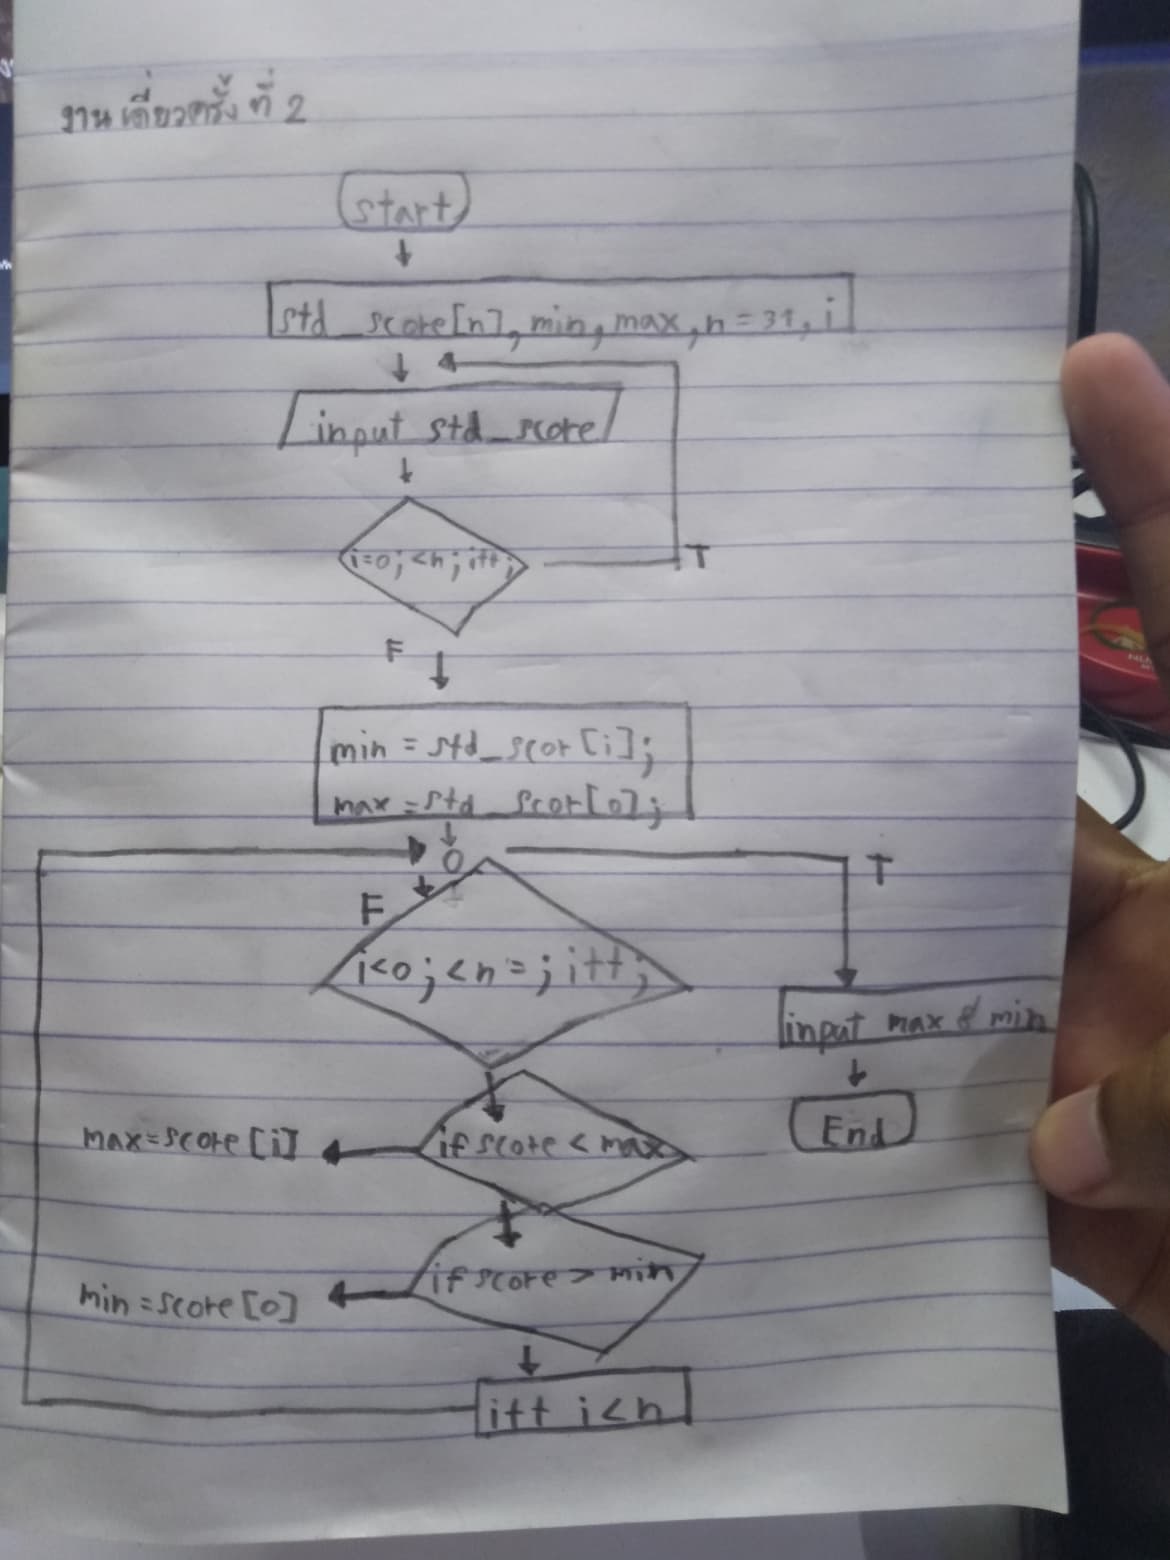 งานเดี่ยวครั้งที่ 2
start
std_score[n], min, max, n = 31, i
input std_score
i=0; <n; i++;
T
F
min = std_scor[i];
max = std_scor[0];
T
F
i<0; <n=; i++;
input max & min
End
if score < max
max=score[i]
if score > min
min=score[0]
i++ i<n